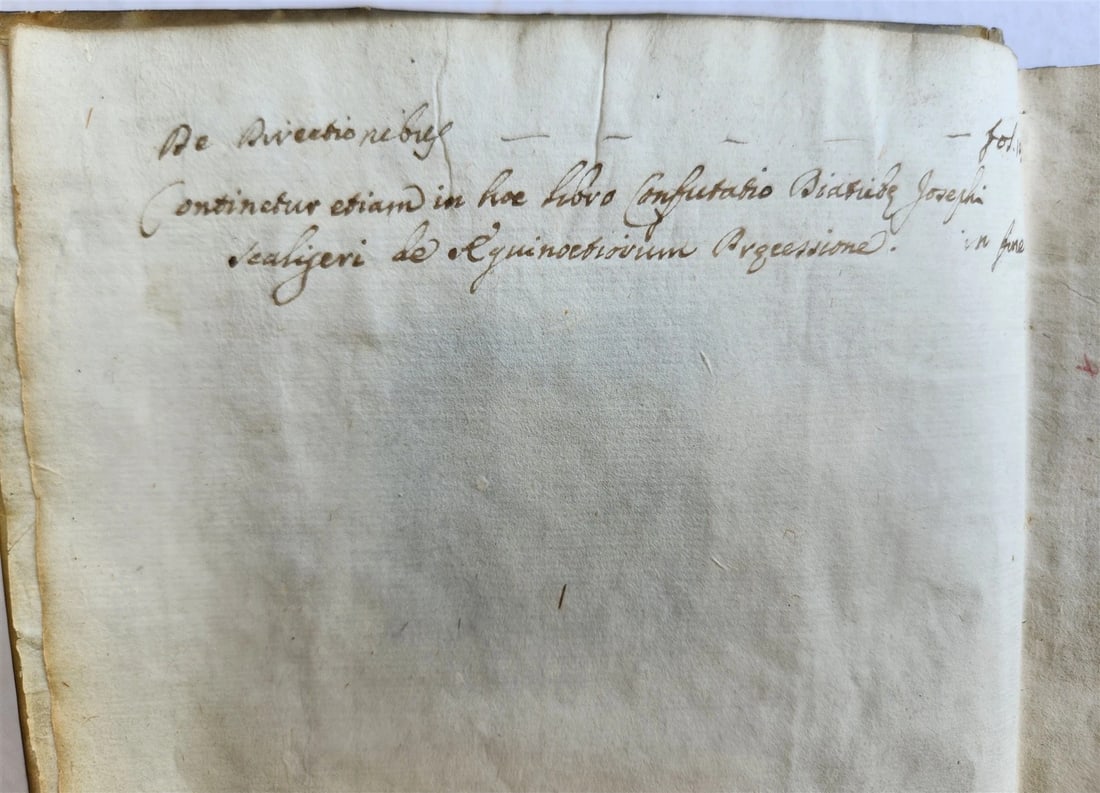 De Directionibus — — — — — fol.
Continetur etiam in hoc libro Confutatio Diatribę Josephi
Scaligeri de Æquinoctiorum Pręcessione. in fine